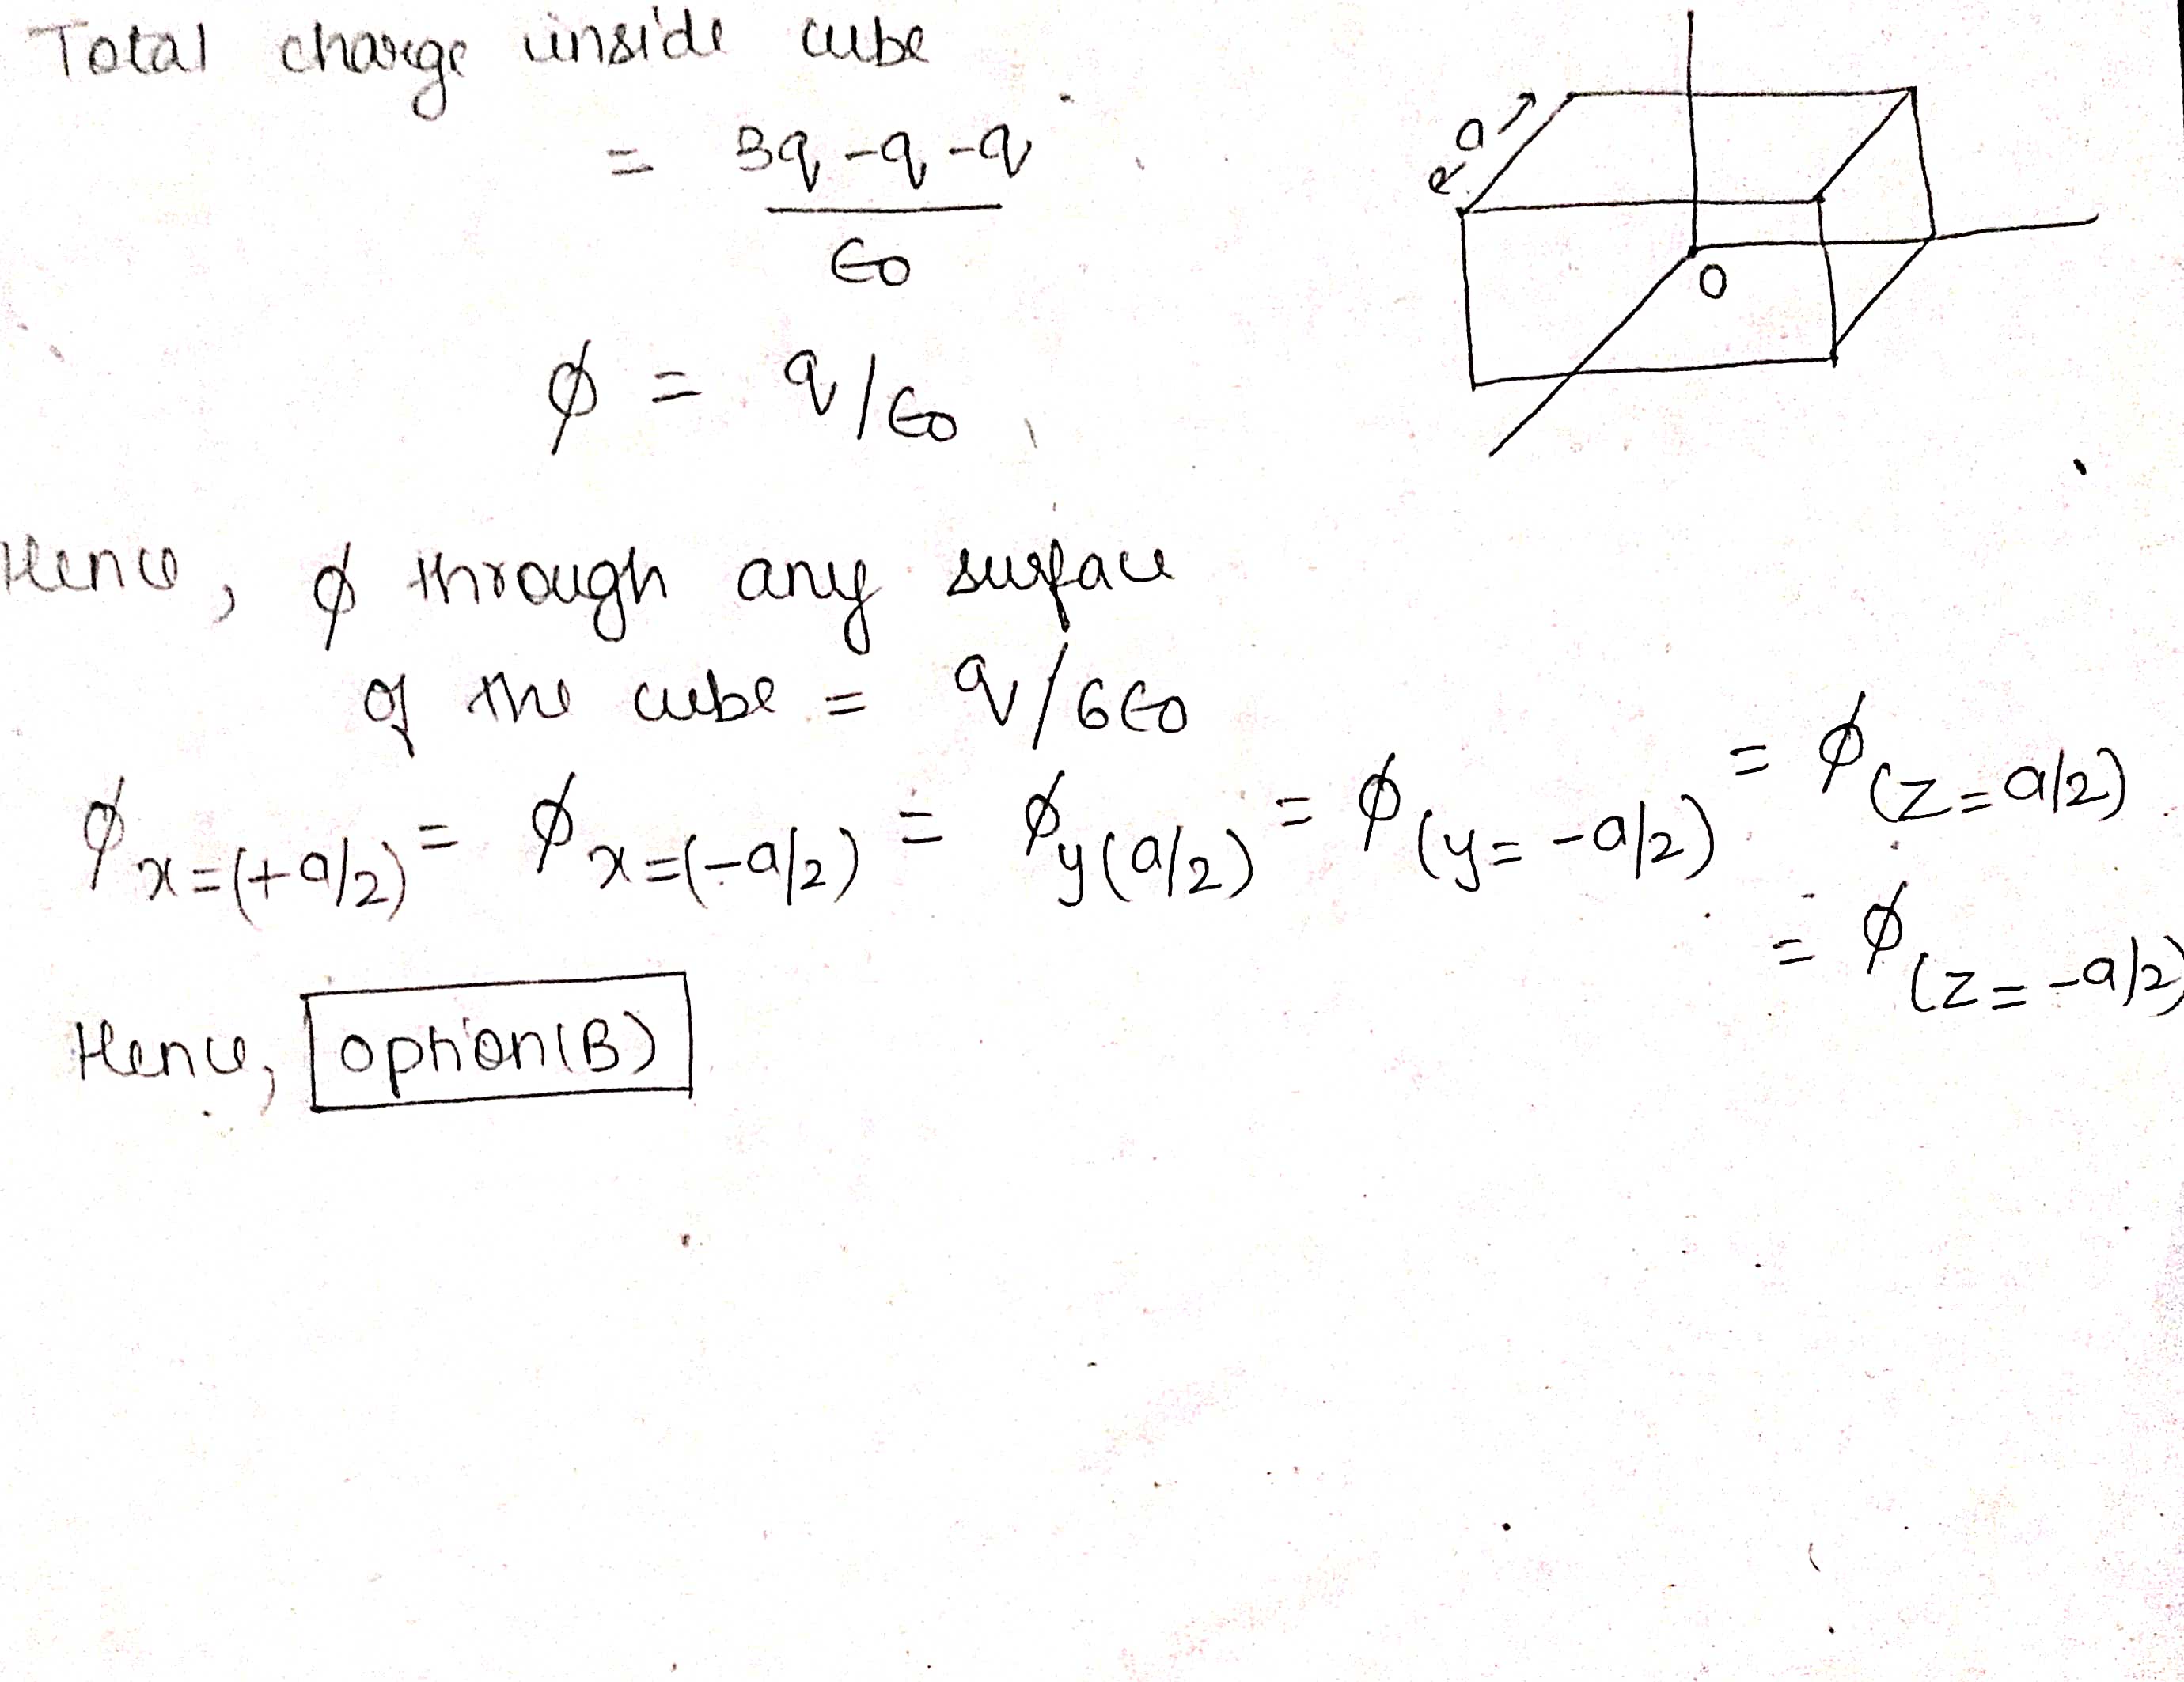 Total charge inside cube
= 3q - q - q
ϵ0
ϕ = q/ϵ0
a
O
Hence, ϕ through any surface
of the cube = q/6ϵ0
ϕx=(+a/2) = ϕx=(-a/2) = ϕy(a/2) = ϕ(y=-a/2) = ϕ(z=a/2)
= ϕ(z=-a/2)
Hence, option(B)